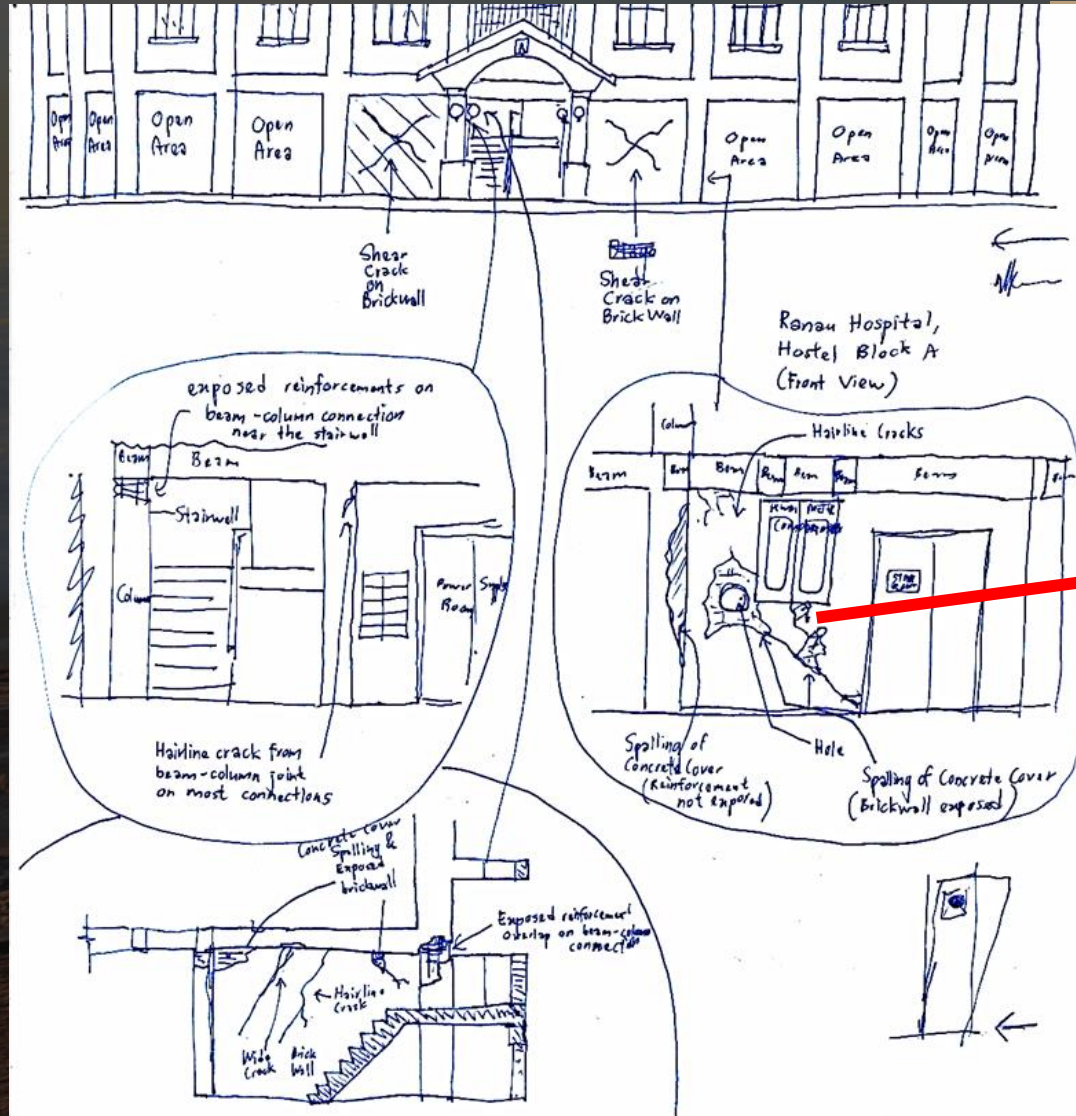 A
Open
Area
Open
Area
Open
Area
Open
Area
Open
Area
Open
Area
Open
Area
Open
Area
Shear
Crack
on
Brickwall
Shear
Crack on
Brick Wall
Ranau Hospital,
Hostel Block A
(Front View)
exposed reinforcements on
beam-column connection
near the stairwell
Beam
Beam
Stairwell
Column
Power
Room
Hairline crack from
beam-column joint
on most connections
Colum
Hairline Cracks
Beam
Beam
Beam
Beam
Beam
Spalling of
Concrete Cover
(Reinforcement
not exposed)
Hole
Spalling of Concrete Cover
(Brickwall exposed)
Concrete Cover
Spalling &
Exposed
brickwall
Exposed reinforcement
Overlap on beam-column
connection
Hairline
Crack
Wide
Crack
Brick
Wall